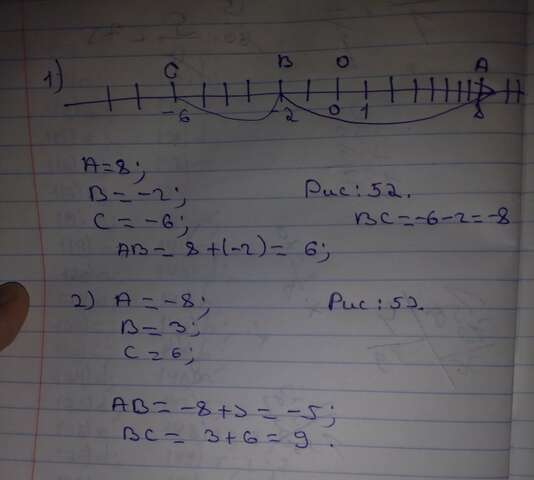 1)
C B O A
-6 -2 0 1 8
A=8;
B=-2;
Рис: 52.
C=-6;
BC=-6-2=-8
AB=8+(-2)=6;
2) A=-8;
Рис: 53.
B=3;
C=6;
AB=-8+3=-5;
BC=3+6=9.